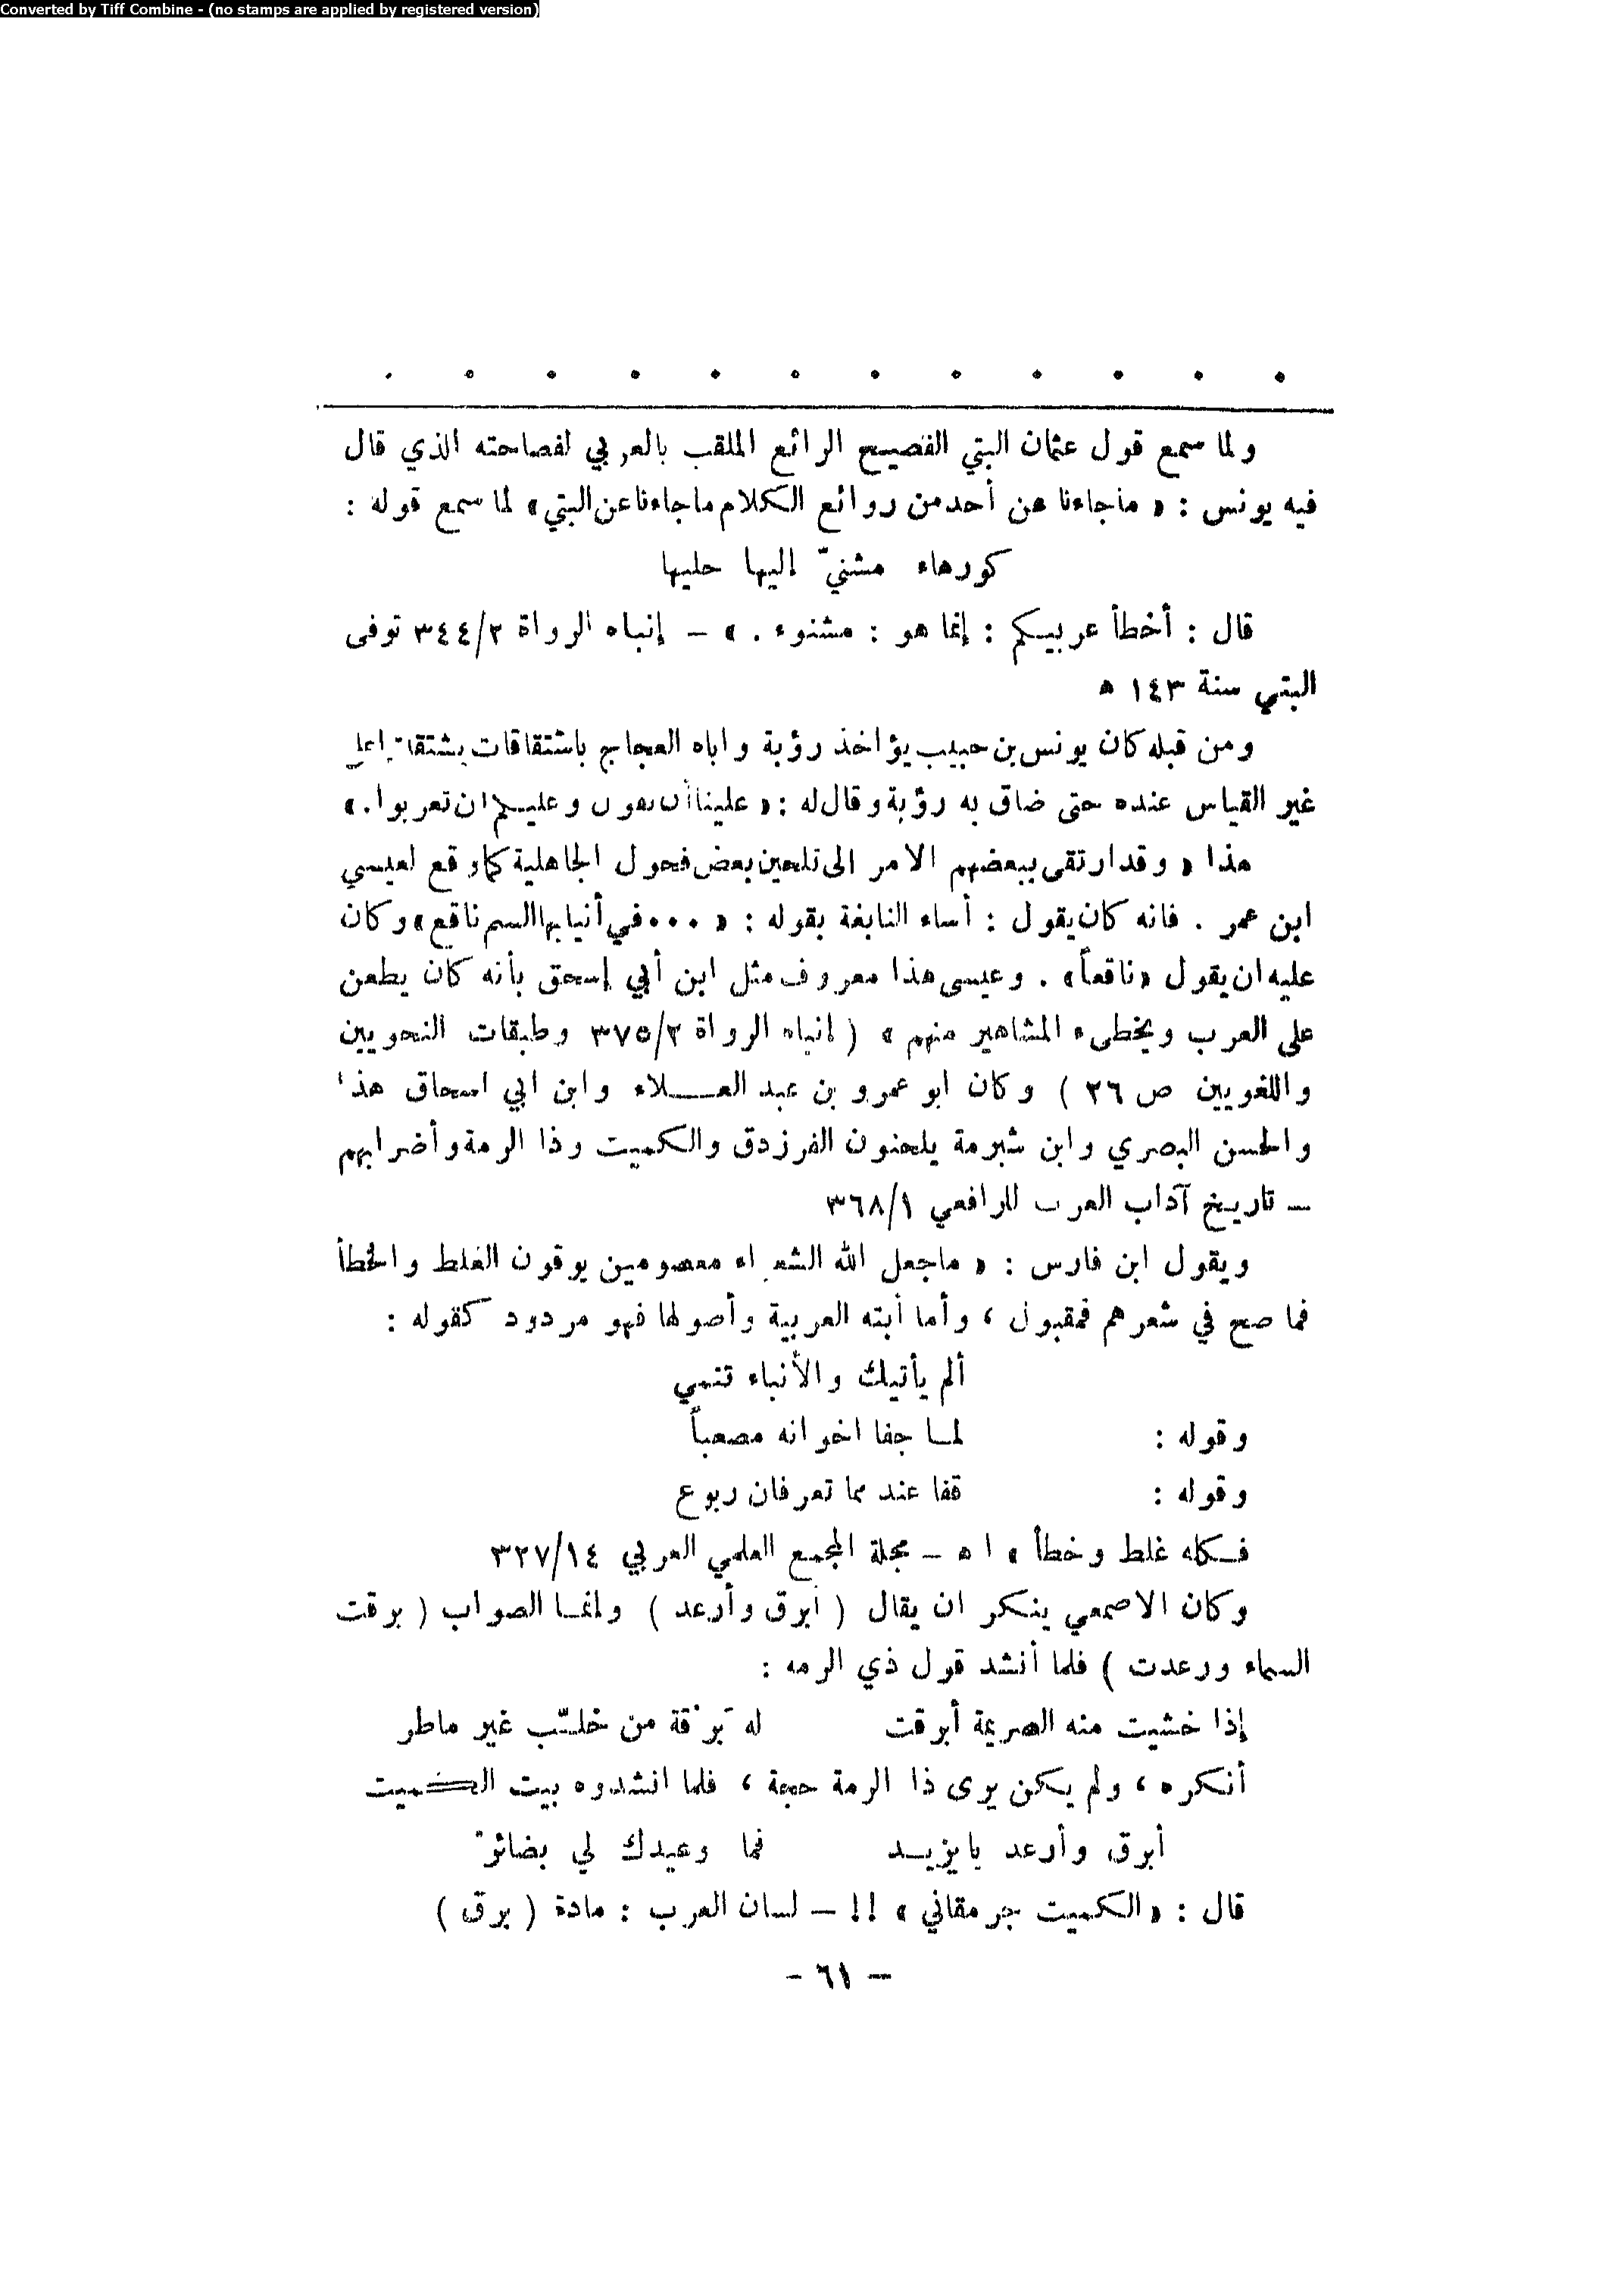 Converted by Tiff Combine - (no stamps are applied by registered version)
. . . . . . . . . . . .
ولما سمع قول عثمان البتي الفصيح الرائع الملقب بالعربي لفصاحته الذي قال
فيه يونس : « ماجاءنا عن أحد من روائع الكلام ماجاءنا عن البتي » لما سمع قوله :
كورهاء مشنيّ إليها حليها
قال : أخطأ عربيكم : إنما هو : مشنوء . » – إنباه الرواة ٣٤٤/٢ توفى
البتي سنة ١٤٣ ه
ومن قبله كان يونس بن حبيب يؤاخذ رؤبة واباه العجاج باشتقاقات
غير القياس عنده حتى ضاق به رؤبة وقال له : « علينا أن نقول وعليكم ان تعربوا . »
هذا « وقد ارتقى ببعضهم الامر الى تلحين بعض فحول الجاهلية كما وقع لعيسي
ابن عمر . فانه كان يقول : أساء النابغة بقوله : « ... في أنيابها السم ناقع » وكان
عليه ان يقول « ناقعاً » . وعيسى هذا معروف مثل ابن أبي إسحق بأنه كان يطعن
على العرب ويخطىء المشاهير منهم » ( إنباه الرواة ٣٧٥/٢ وطبقات النحويين
واللغويين ص ٢٦ ) وكان ابو عمرو بن عبد العلاء وابن ابي اسحاق هذا
والحسن البصري وابن شبرمة يلحنون الفرزدق والكميت وذا الرمة وأضرابهم
– تاريخ آداب العرب للرافعي ٣٦٨/١
ويقول ابن فارس : « ماجعل الله الشعراء معصومين يوقون الغلط والخطأ
فما صح في شعرهم فمقبول ، وأما أبته العربية وأصولها فهو مردود كقوله :
ألم يأتيك والأنباء تنمي
وقوله : لما جفا اخوانه مصعباً
وقوله : قفا عند مما تعرفان ربوع
فكله غلط وخطأ » ا ه – مجلة المجمع العلمي العربي ٣٢٧/١٤
وكان الاصمعي ينكر ان يقال ( أبرق وأرعد ) وإنما الصواب ( برقت
السماء ورعدت ) فلما أنشد قول ذي الرمه :
إذا خشيت منه الصريمة أبرقت له بَرْقة من خلّب غير ماطر
أنكره ، ولم يكن يرى ذا الرمة حجة ، فلما انشدوه بيت الكميت
أبرق وأرعد يا يزيد فما وعيدك لي بضائرْ
قال : « الكميت جرمقاني » !! – لسان العرب : مادة ( برق )
– ٦١ –